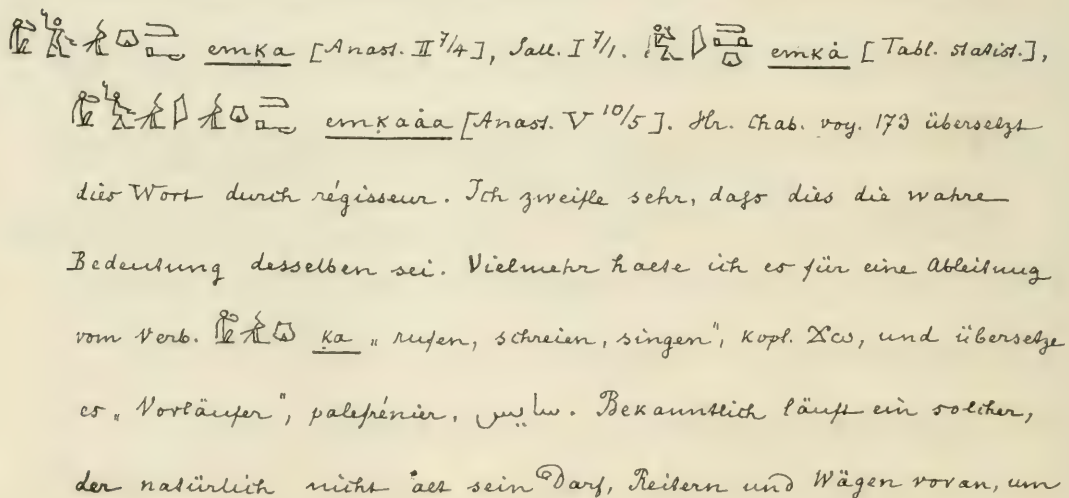 emḳa [Anast. II 7/4], Sall. I 7/1. emkȧ [Tabl. statist.],
emḳaȧa [Anast. V 10/5]. Hr. Chab. voy. 173 übersetzt
dies Wort durch régisseur. Ich zweifle sehr, dafs dies die wahre
Bedeutung desselben sei. Vielmehr halte ich es für eine Ableitung
vom Verb. ḳa „rufen, schreien, singen", kopt. ϫω, und übersetze
es „Vorläufer", palefrénier, سايس. Bekanntlich läuft ein solcher,
der natürlich nicht alt sein Darf, Reitern und Wägen voran, um